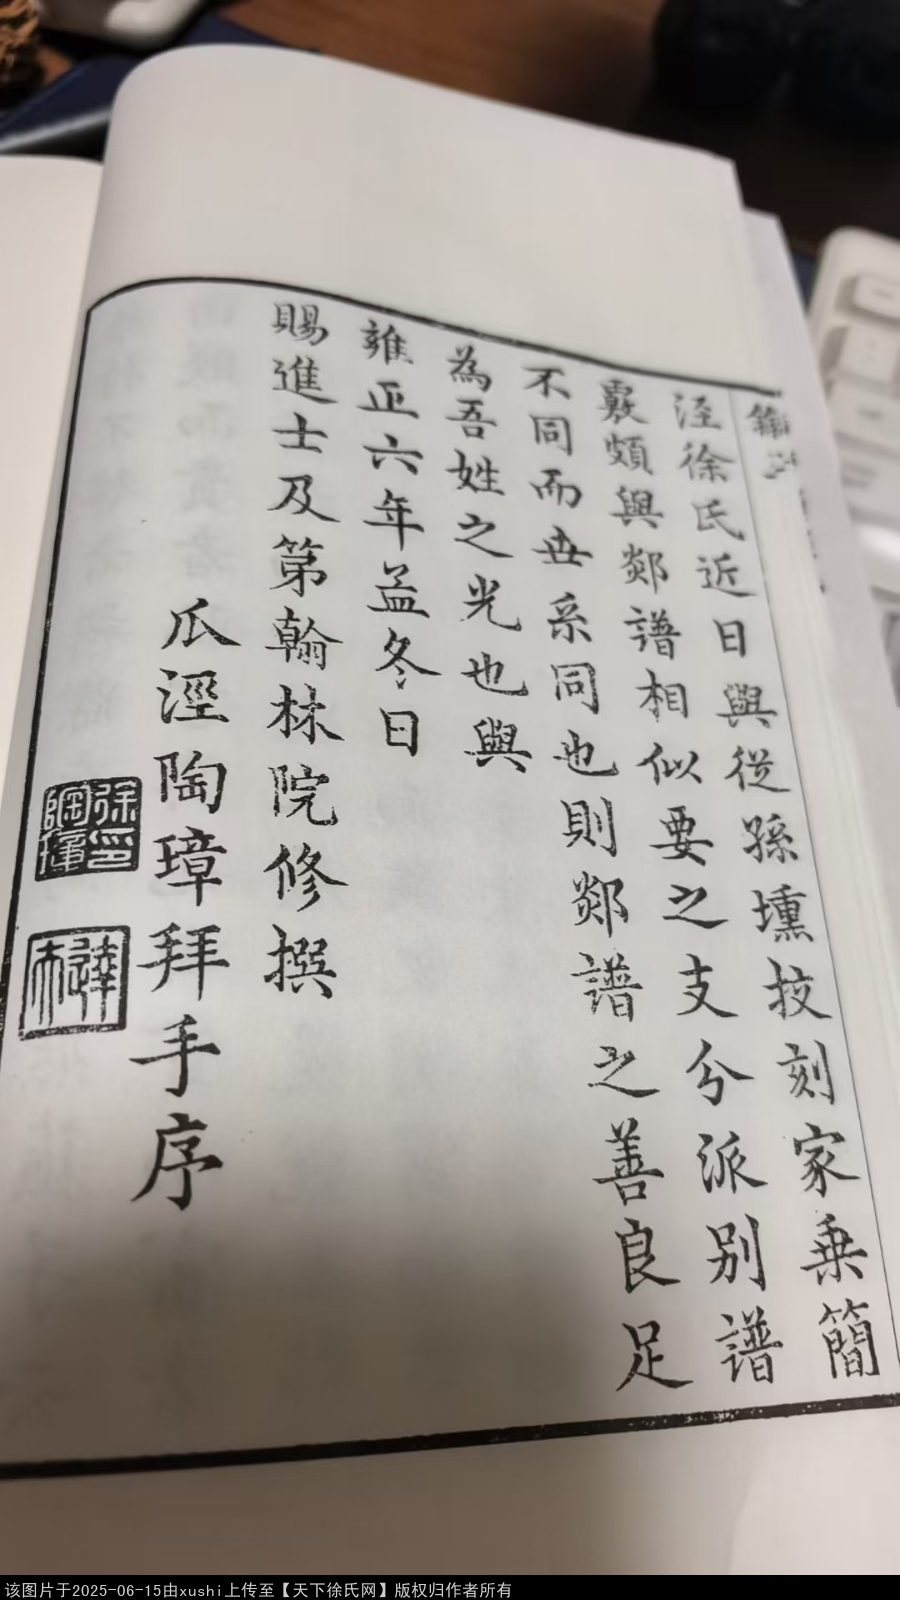 涇徐氏近日與從孫壎技刻家乗簡
覈頗與鄒譜相似要之支分派别譜
不同而世系同也則鄒譜之善良足
為吾姓之光也與
雍正六年孟冬日
賜進士及第翰林院修撰
瓜涇陶璋拜手序
徐印陶璋
達夫
该图片于2025-06-15由xushi上传至【天下徐氏网】版权归作者所有